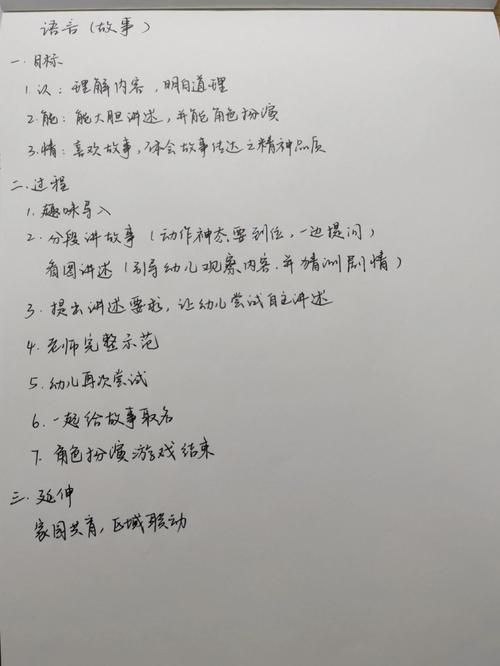 语言(故事)
一.目标
1.认:理解内容,明白道理
2.能:能大胆讲述,并能角色扮演
3.情:喜欢故事,体会故事传达之精神品质
二.过程
1.趣味导入
2.分段讲故事(动作神态要到位,一边提问)
看图讲述(引导幼儿观察内容.并猜测剧情)
3.提出讲述要求,让幼儿尝试自主讲述
4.老师完整示范
5.幼儿再次尝试
6.一起给故事取名
7.角色扮演游戏结束
三.延伸
家园共育,区域联动